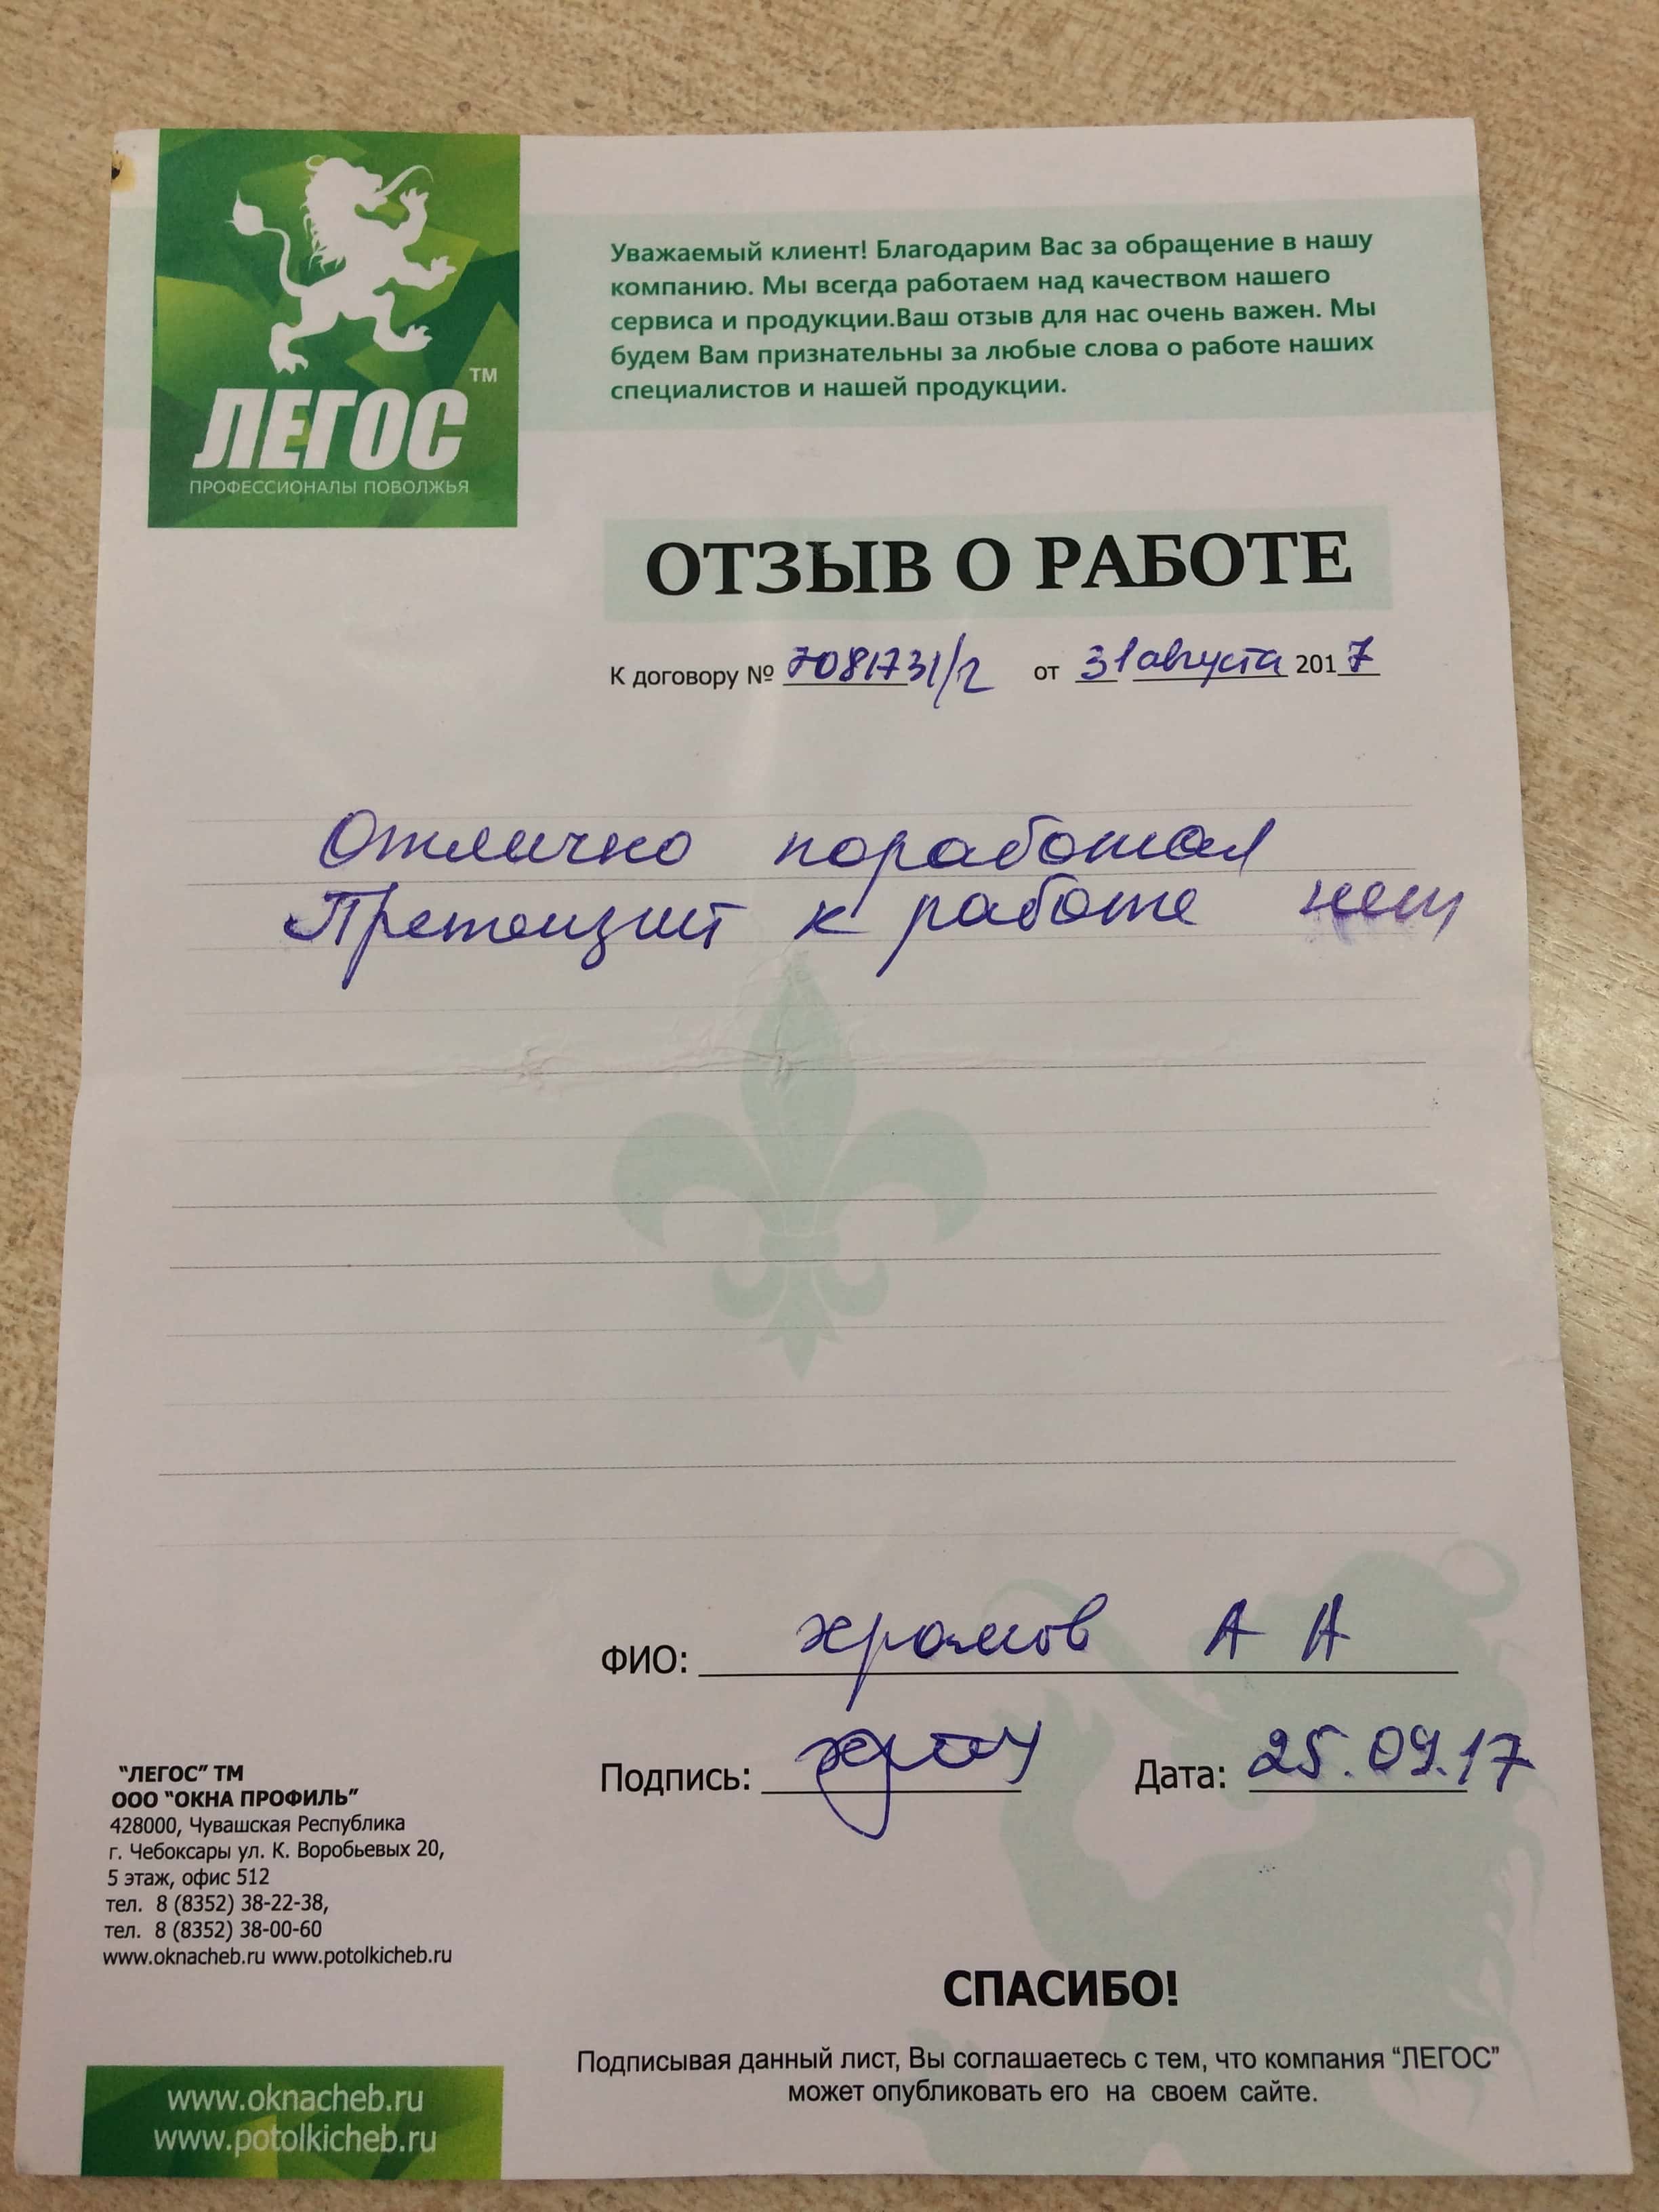 ЛЕГОС
TM
ПРОФЕССИОНАЛЫ ПОВОЛЖЬЯ
Уважаемый клиент! Благодарим Вас за обращение в нашу
компанию. Мы всегда работаем над качеством нашего
сервиса и продукции.Ваш отзыв для нас очень важен. Мы
будем Вам признательны за любые слова о работе наших
специалистов и нашей продукции.
ОТЗЫВ О РАБОТЕ
К договору № 7081731/2 от 31 августа 2017
Отлично поработал
Претензит к работе нет
ФИО: Храмов А А
Подпись: Дата: 25.09.17
"ЛЕГОС" ТМ
ООО "ОКНА ПРОФИЛЬ"
428000, Чувашская Республика
г. Чебоксары ул. К. Воробьевых 20,
5 этаж, офис 512
тел. 8 (8352) 38-22-38,
тел. 8 (8352) 38-00-60
www.oknacheb.ru www.potolkicheb.ru
СПАСИБО!
Подписывая данный лист, Вы соглашаетесь с тем, что компания "ЛЕГОС"
может опубликовать его на своем сайте.
www.oknacheb.ru
www.potolkicheb.ru